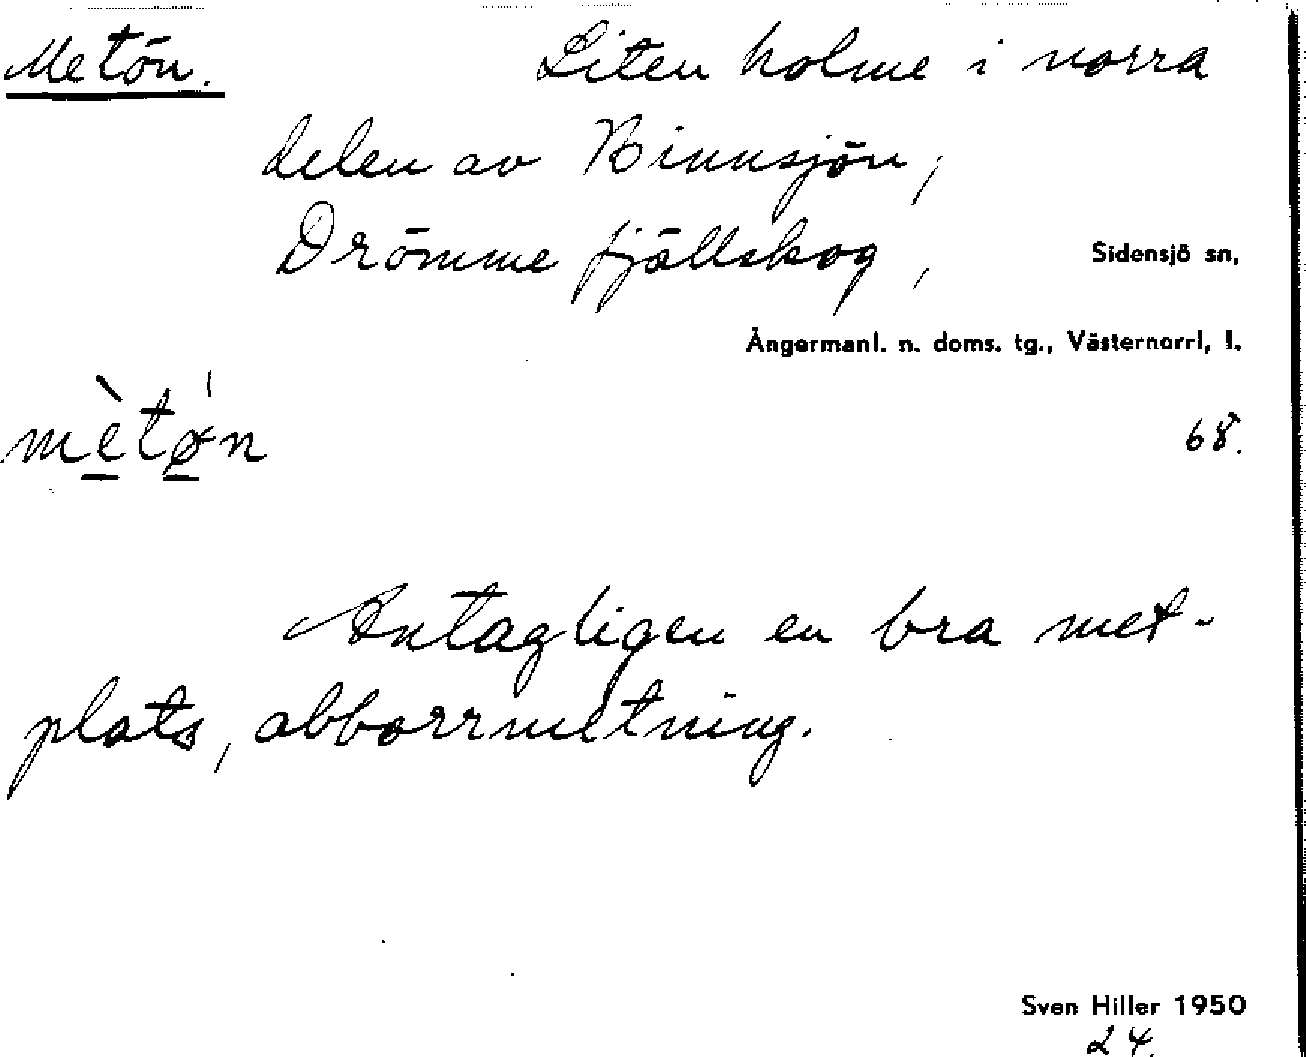 Metön. Liten holme i norra
delen av Binnsjön,
Drömme fjällskog, Sidensjö sn,
Ångermanl. n. doms. tg., Västernorrl, l.
mètø´n 68.
Antagligen en bra met-
plats, abborrmetning.
Sven Hiller 1950
24.